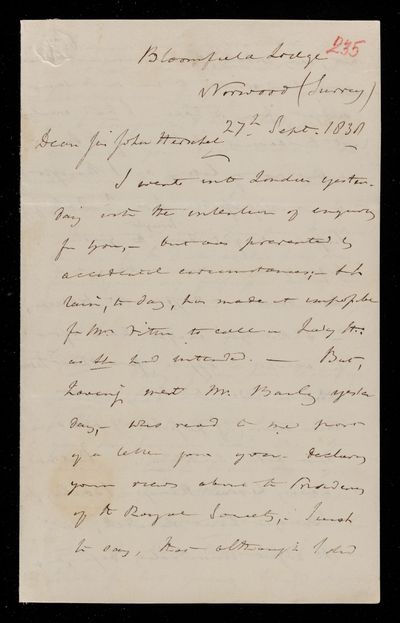 235
Bloomfield Lodge
Norwood (Surrey)
27th Sept. 1838
Dear Sir John Herschel
I went into London yester-
day with the intention of enquiring
for you,- but was prevented by
accidental circumstances;- & the
rain, to day, has made it impossible
for Mrs. to call on Lady H.
as she had intended. — But,
having met Mr. Baily yester
day,- who read to me part
of a letter from you declaring
your views about the Presidency
of the Royal Society,- I wish
to say, that although I did